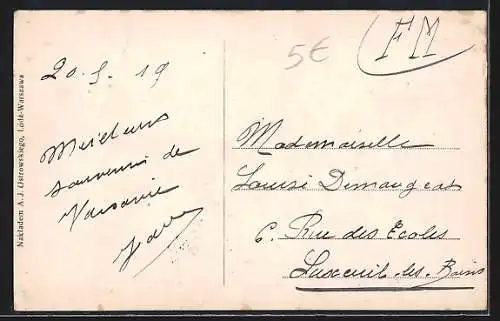 Nakładem A. J. Ostrowskiego, Łódź-Warszawa
20.5.19
Meilleurs
souvenirs de
Varsovie
5€
FM
Mademoiselle
Louise Demangeat
6. Rue des Ecoles
Luxeuil-les-Bains